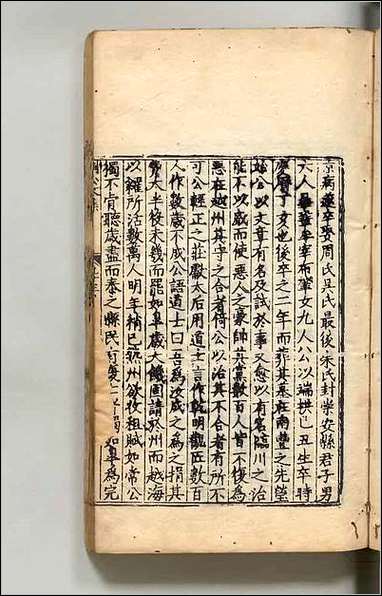 京病遂卒娶周氏吳氏最後朱氏封崇安縣君子男
六人曄鞏牟宰布肇女九人公以端拱己丑生卒時
慶曆丁亥也後卒之二年而葬其墓在南豐之先塋
始公以文章有名及試於事又愈以有名臨川之治
能不以威而使惡人之豪帥其黨數百人皆不復為
惡在越州其守之合者倚公以治其不合者有所不
可公輕正之莊獻太后用道士言作乾明觀匠數百
人作數歲不成公語道士曰吾為汝成之為之捐其
費大半役未幾而罷如皋歲大饑固請於州而越海
以糴所活數萬人明年稍已熟州欲收租賦如常公
獨不肯聽歲盡而泰之縣民 如皋為完